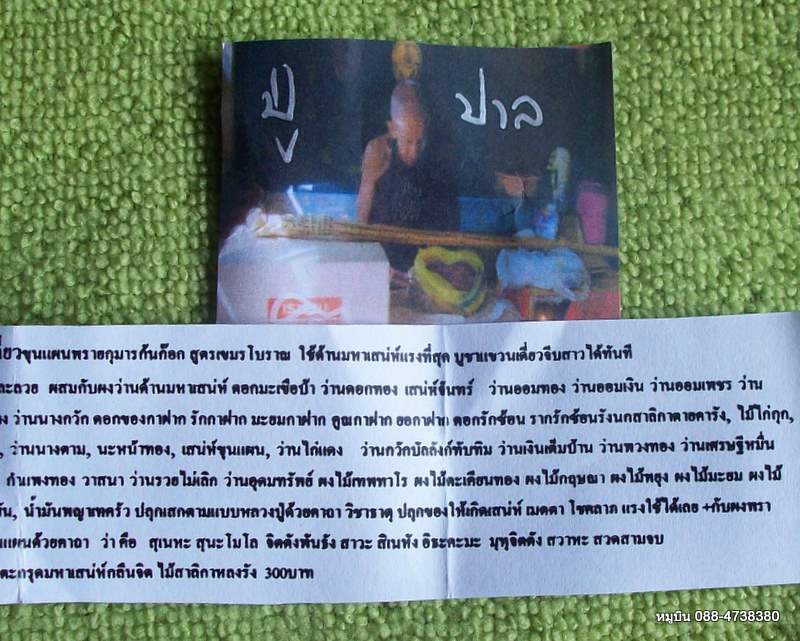 ปู่ ปาล
ขุนแผนพรายกุมารก้นก๊อก สูตรเขมรโบราณ ใช้ด้านมหาเสน่ห์แรงที่สุด บูชาแขวนเดี่ยวจีบสาวได้ทันที
ผสมกับผงว่านด้านมหาเสน่ห์ ดอกมะเขือบ้า ว่านดอกทอง เสน่ห์จันทร์ ว่านออมทอง ว่านออมเงิน ว่านออมเพชร ว่าน
ว่านนางกวัก ดอกของกาฝาก รักกาฝาก มะยมกาฝาก คูณกาฝาก ยอกาฝาก ดอกรักซ้อน รากรักซ้อนรังนกสาลิกาตายคารัง, ไม้ไก่กุก,
ว่านนางตาม, นะหน้าทอง, เสน่ห์ขุนแผน, ว่านไก่แดง ว่านกวักบัลลังก์ทับทิม ว่านเงินเต็มบ้าน ว่านพวงทอง ว่านเศรษฐีหมื่น
กำแพงทอง วาสนา ว่านรวยไม่เลิก ว่านอุดมทรัพย์ ผงไม้เทพทาโร ผงไม้ตะเคียนทอง ผงไม้กฤษณา ผงไม้พยุง ผงไม้มะยม ผงไม้
น้ำมันพญาเทครัว ปลุกเสกตามแบบหลวงปู่ด้วยคาถา วิชาธาตุ ปลุกของให้เกิดเสน่ห์ เมตตา โชคลาภ แรงใช้ได้เลย +กับผงพรา
แผนด้วยคาถา ว่า คือ สุเนหะ สุนะโมโล จิตตังพันธัง สาวะ สิเนหัง อิธะคะมะ มุทุจิตตัง สวาหะ สวดสามจบ
ตะกรุดมหาเสน่ห์กลืนจิต ไม้สาลิกาหลงรัง 300บาท
หมูบิน 088-4738380